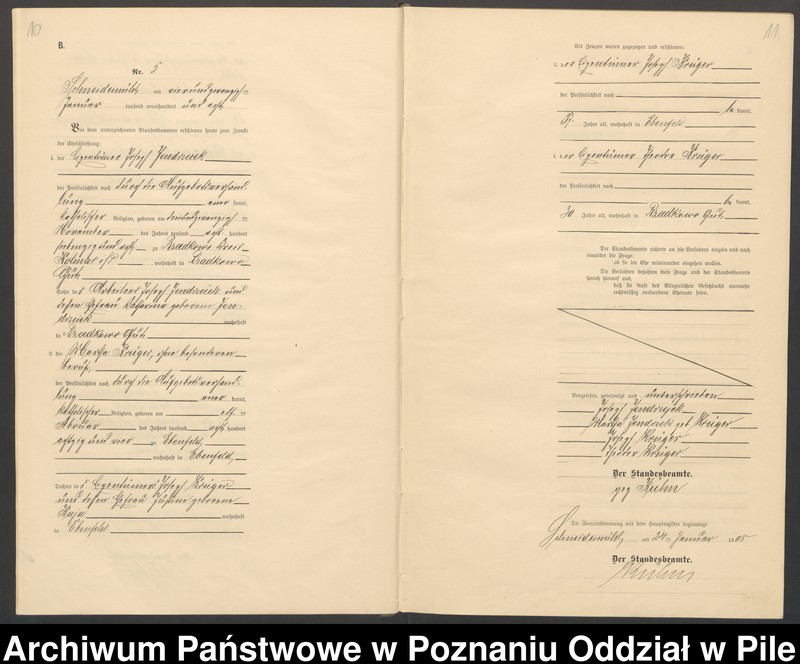 10
B.
Nr. 5
Schneidemühl am vierundzwanzigsten
Januar tausend neunhundert und acht
Vor dem unterzeichneten Standesbeamten erschienen heute zum Zwecke
der Eheschließung:
1. der Eigentümer Josef Jendrzeick
der Persönlichkeit nach durch die Aufgebotsverhand-
lung kannt,
katholischer Religion, geboren am
November des Jahres tausend acht hundert
siebenzig und acht zu Bradkowo Kreis
Kolmar i/P, wohnhaft in Bradkowo
Gut
Sohn des Arbeiters Josef Jendrzeick und
dessen Ehefrau Katharina geborene Jen-
drzeick wohnhaft
in Bradkowo Gut
2. die Martha Krüger, ohne besonderen
Beruf,
der Persönlichkeit nach durch die Aufgebotsverhand-
lung kannt,
katholischer Religion, geboren am elften
Februar des Jahres tausend acht hundert
achtzig und vier zu Ebenfeld,
wohnhaft in Ebenfeld,
Tochter des Eigentümers Josef Krüger
und dessen Ehefrau Justine geborene
wohnhaft
in Ebenfeld
11
Als Zeugen waren zugezogen und erschienen:
3. der Eigentümer Josef Krüger
der Persönlichkeit nach
be kannt,
Jahre alt, wohnhaft in Ebenfeld
4. der Eigentümer Theodor Krüger
der Persönlichkeit nach
be kannt,
30 Jahre alt, wohnhaft in Bradkowo Gut
Der Standesbeamte richtete an die Verlobten einzeln und nach
einander die Frage:
ob sie die Ehe miteinander eingehen wollen.
Die Verlobten bejahten diese Frage und der Standesbeamte
sprach hierauf aus,
daß sie kraft des Bürgerlichen Gesetzbuchs nunmehr
rechtmäßig verbundene Eheleute seien.
Vorgelesen, genehmigt und unterschrieben
Josef Jendrzejck
Martha Jendrzeick geb Krüger
Josef Krüger
Theodor Krüger
Der Standesbeamte.
gez Kuhn
Die Übereinstimmung mit dem Hauptregister beglaubigt
Schneidemühl, am 24ten Januar 1908
Der Standesbeamte.
Kuhn
Archiwum Państwowe w Poznaniu Oddział w Pile